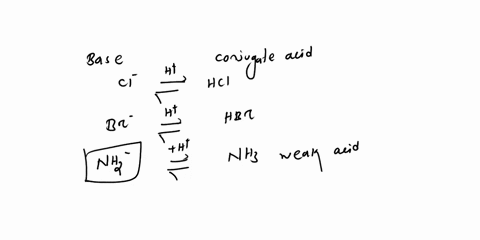 Base conjugate acid
Cl⁻ H⁺ ⇌ HCl
Br⁻ H⁺ ⇌ HBr
NH₂⁻ +H⁺ ⇌ NH3 weak acid